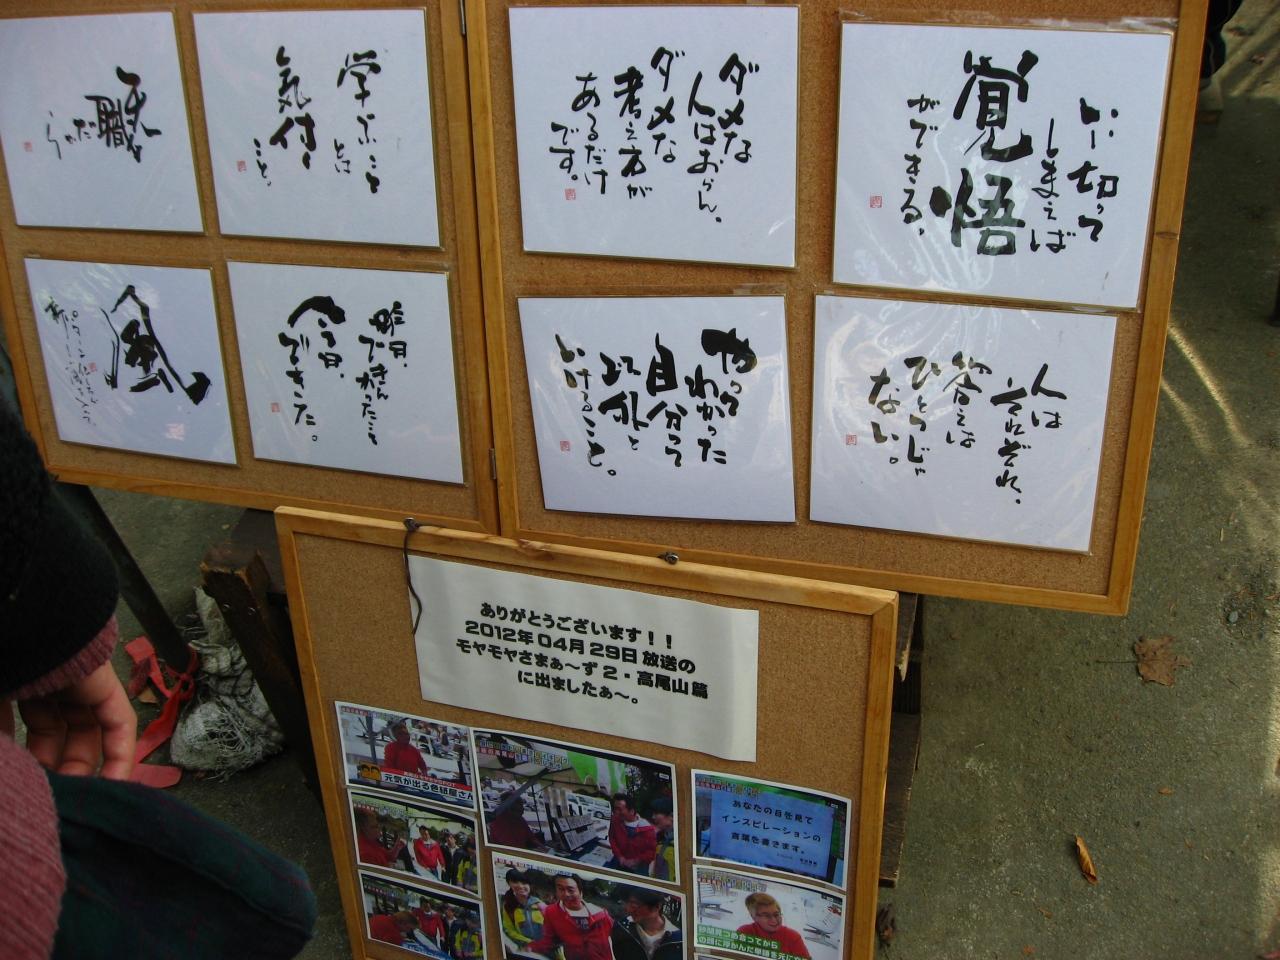 天職
だったら
学ぶこと
とは
気付く
こと。
ダメな
人はおらん。
ダメな
考え方が
あるだけ
です。
いい切って
しまえば
覚悟
ができる。
風
昨日、
できんかったこと
今日、
できた。
やって
わかった
自分って
以外と
いけること。
人は
それぞれ、
答えは
ひとつじゃ
ない。
ありがとうございます!!
2012年04月29日放送の
モヤモヤさまぁ〜ず2・高尾山篇
に出ましたぁ〜。
元気が出る色紙屋さん
あなたの目を見て
インスピレーションの
言葉を書きます。
秒間見つめ合ってから
の頭に浮かんだ単語を元に